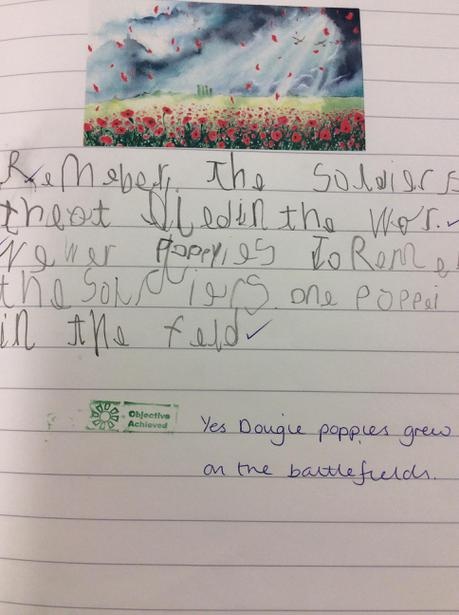 Remeber. The soldiers
theot diedin the wor.
Wewer Poppyies ToReme
the soldiers. one Poppei
in the feld
Objective
Achieved
Yes Dougie poppies grew
on the battlefields.